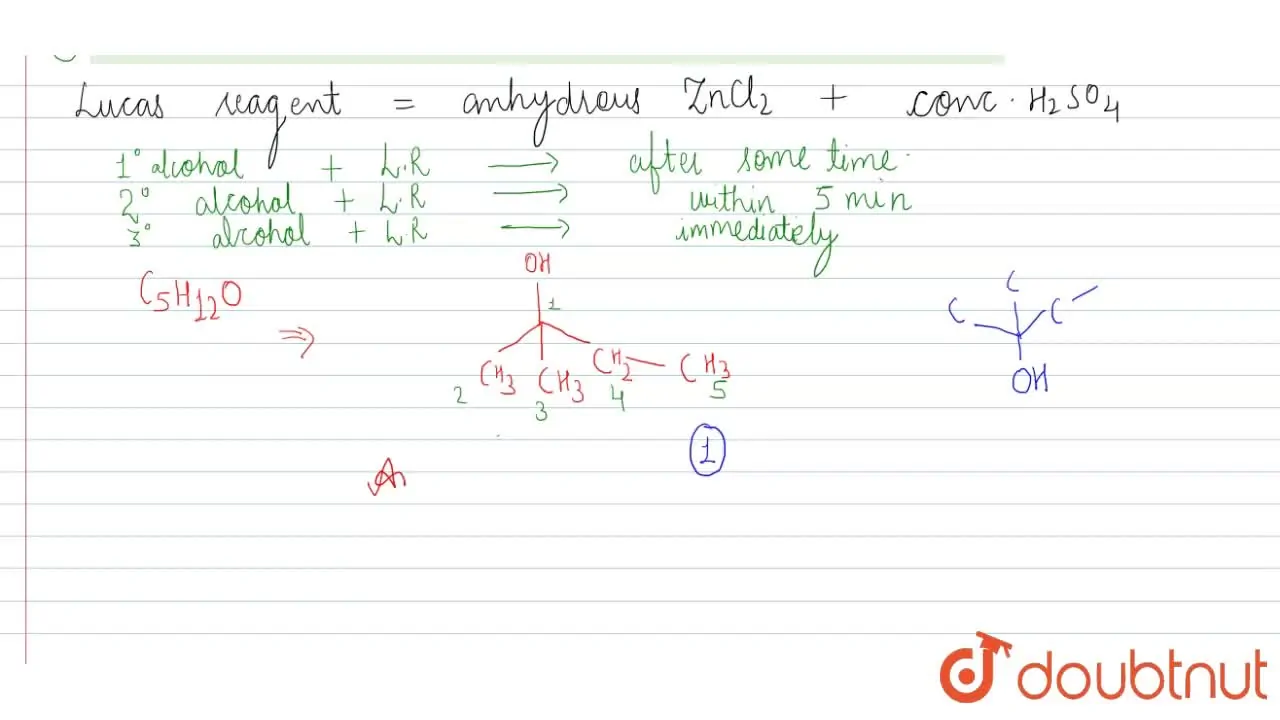 Lucas reagent = anhydrous ZnCl2 + conc. H2SO4
1° alcohol + L.R → after some time.
2° alcohol + L.R → within 5 min
3° alcohol + L.R → immediately
OH
C5H12O ⇒
1
CH3 CH3 CH2 CH3
2 3 4 5
C C C
OH
1
doubtnut